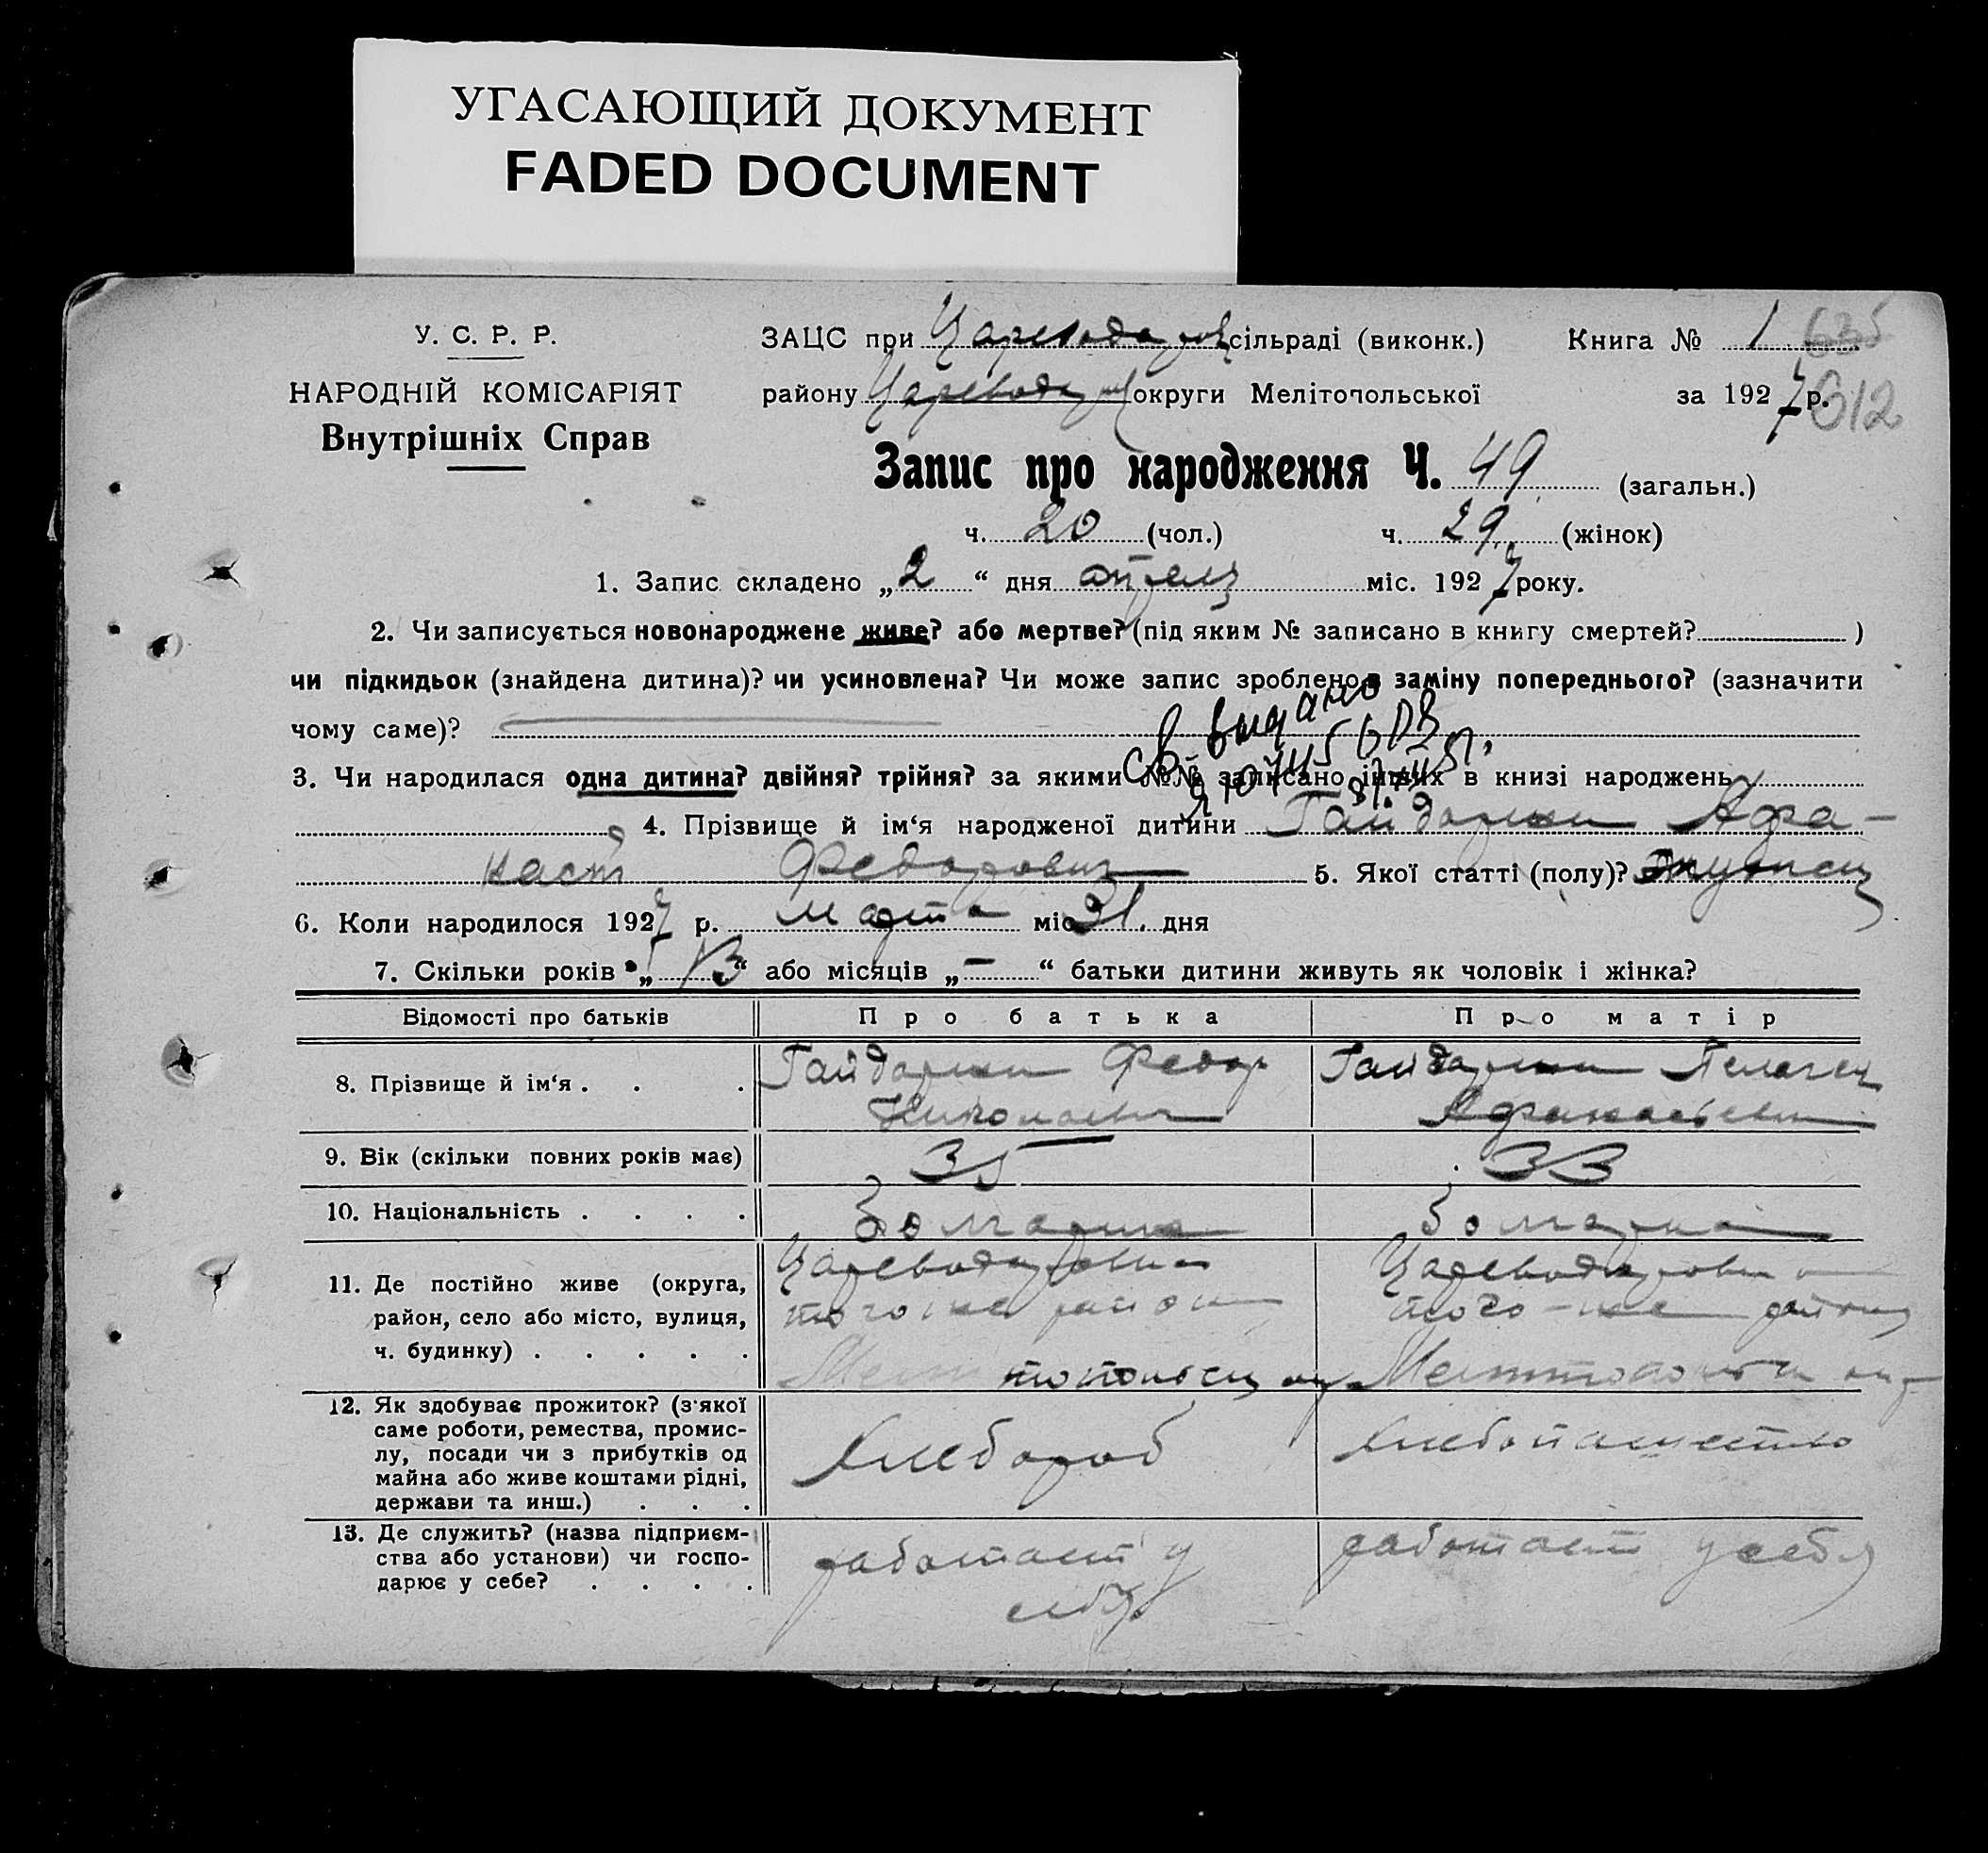 УГАСАЮЩИЙ ДОКУМЕНТ
FADED DOCUMENT
У. С. Р. Р.
НАРОДНІЙ КОМІСАРІЯТ
Внутрішніх Справ
ЗАЦС при сільраді (виконк.) Книга № 1 635
району округи Мелітопольської за 1927 р. 612
Запис про народження Ч. 49 (загальн.)
ч. 20 (чол.) ч. 29 (жінок)
1. Запис складено „2“ дня апреля міс. 1927 року.
2. Чи записується новонароджене живе? або мертве? (під яким № записано в книгу смертей? )
чи підкидьок (знайдена дитина)? чи усиновлена? Чи може запис зроблено в заміну попереднього? (зазначити
чому саме)?
св. видано
3. Чи народилася одна дитина? двійня? трійня? за якими №№ записано інших в книзі народжень
4. Прізвище й ім‘я народженої дитини Гайдаржи Афа-
насій Федорович 5. Якої статті (полу)?
6. Коли народилося 1927 р. марта міс. 31. дня
7. Скільки років „13“ або місяців „—“ батьки дитини живуть як чоловік і жінка?
Відомості про батьків Про батька Про матір
8. Прізвище й ім‘я . . . Гайдаржи Федор Гайдаржи Пелагея
Николаевич Афанасьевна
9. Вік (скільки повних років має) 35 33
10. Національність . . . . Болгарин Болгарка
11. Де постійно живе (округа,
район, село або місто, вулиця, того же района того-же района
ч. будинку) . . . . . Мелитопольск. Мелитопольск.
12. Як здобуває прожиток? (з якої
саме роботи, ремества, промис-
лу, посади чи з прибутків од Хлебороб Хлебопашество
майна або живе коштами рідні,
держави та инш.) . . .
13. Де служить? (назва підприєм-
ства або установи) чи госпо- работает у работает у себя
дарює у себе? . . . . себя